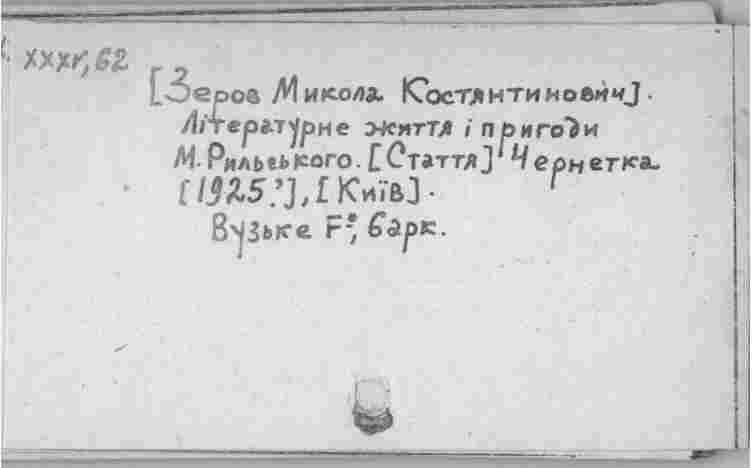 XXXV, 62
[Зеров Микола Костянтинович].
Літературне життя і пригоди
М. Рильського. [Стаття] Чернетка
[1925?], [Київ].
Вузьке F°, 6 арк.